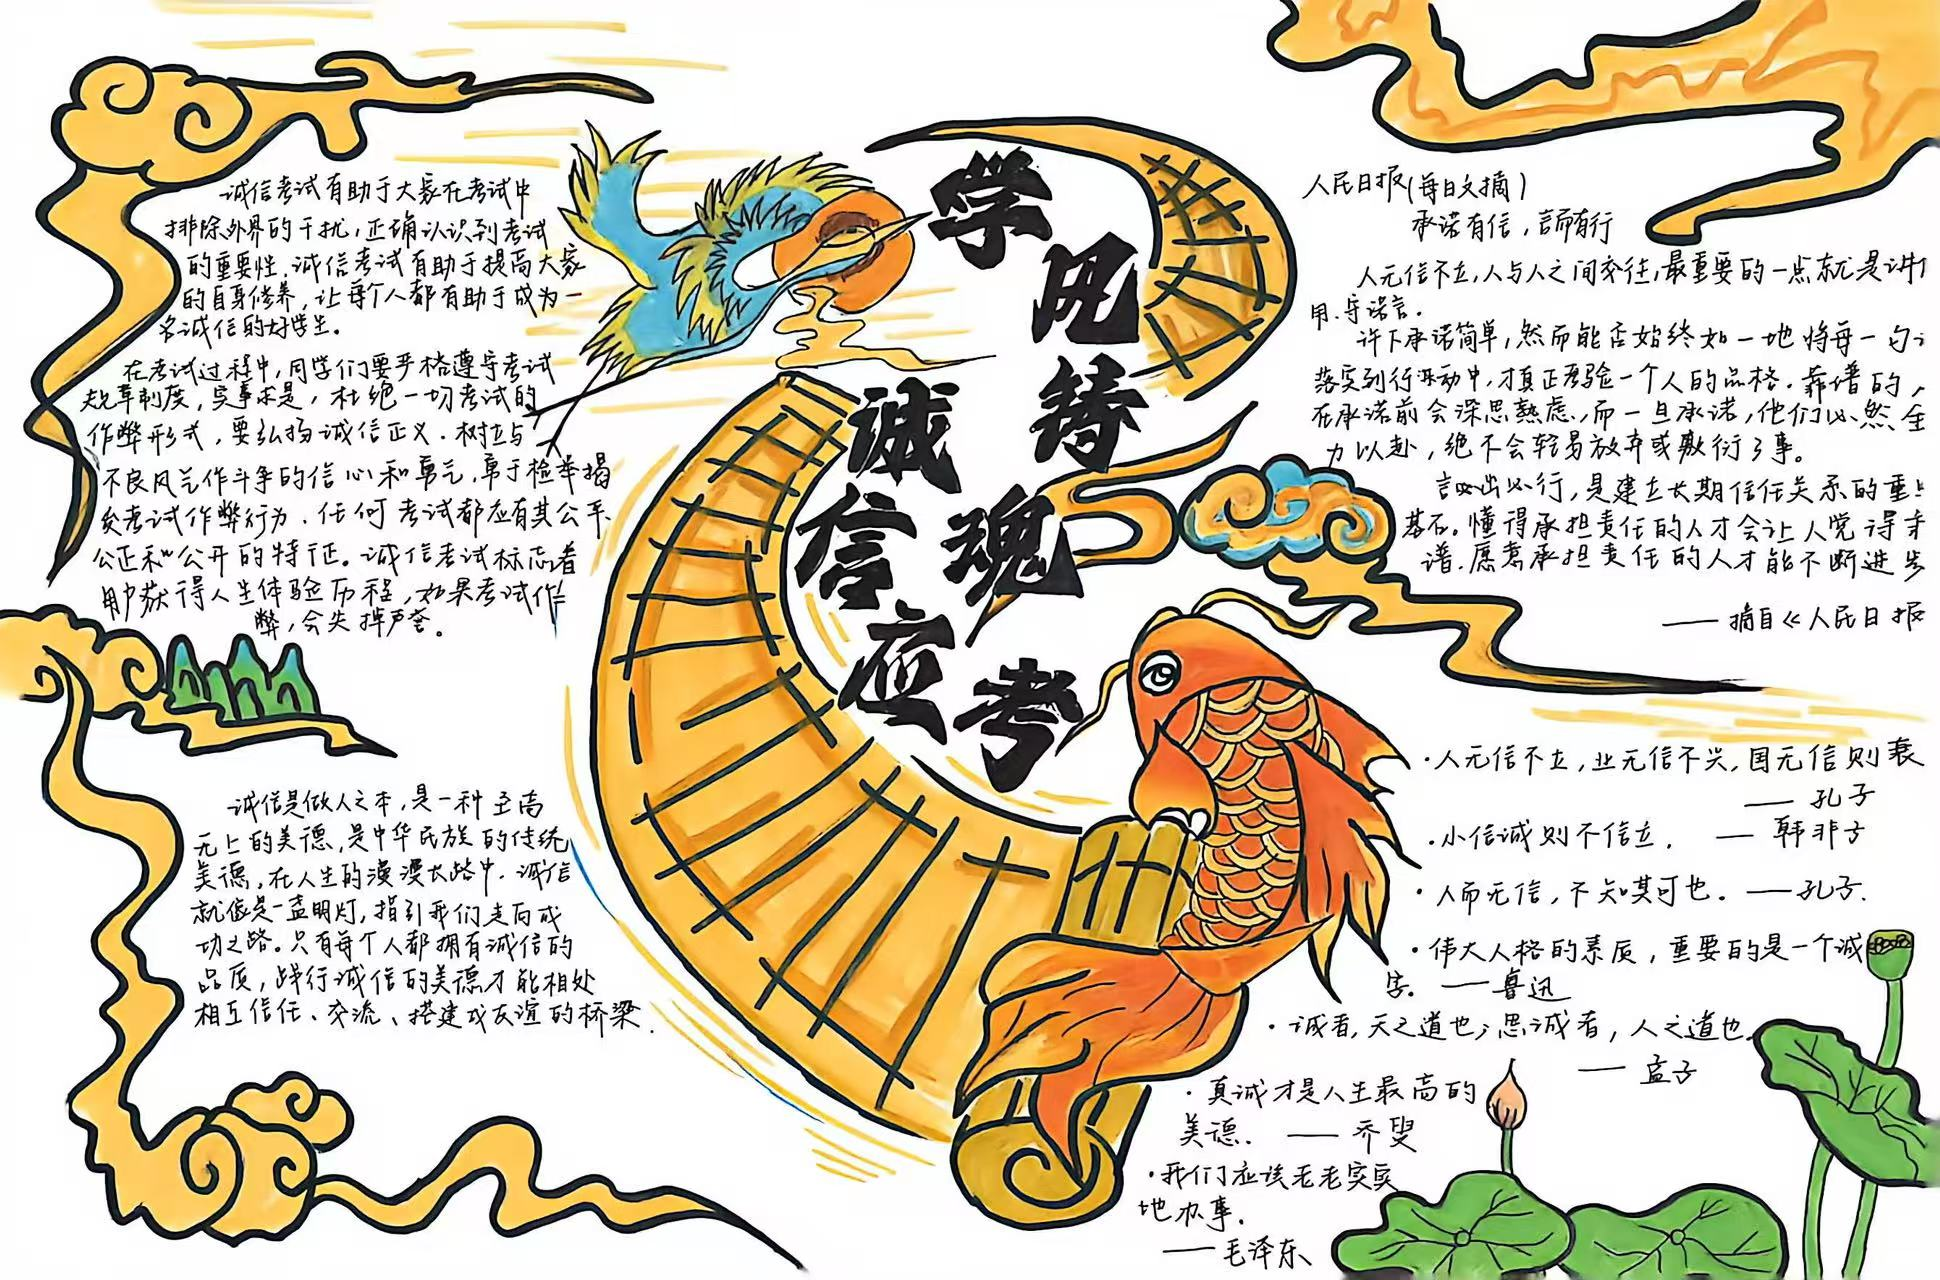 学风铸魂
诚信应考
诚信考试有助于大家在考试中
排除外界的干扰，正确认识到考试
的重要性，诚信考试有助于提高大家
的自身修养，让每个人都有助于成为一
名诚信的好学生。
在考试过程中，同学们要严格遵守考试
规章制度，实事求是，杜绝一切考试的
作弊形式，要弘扬诚信正义．树立与
不良风气作斗争的信心和勇气，勇于检举揭
发考试作弊行为．任何考试都应有其公平、
公正和公开的特征。诚信考试标志着
用户获得人生体验历程，如果考试作
弊，会失掉声誉。
诚信是做人之本，是一种至高
无上的美德，是中华民族的传统
美德，在人生的漫漫长路中．诚信
就像是一盏明灯，指引我们走向成
功之路。只有每个人都拥有诚信的
品质，践行诚信的美德才能相处
相互信任、交流、搭建成友谊的桥梁．
人民日报(每日文摘)
承诺有信，言而有行
人无信不立，人与人之间交往，最重要的一点就是讲
用、守诺言．
许下承诺简单，然而能否始终如一地将每一句
落实到行动中，才真正考验一个人的品格．靠谱的，
在承诺前会深思熟虑，而一旦承诺，他们必然全
力以赴，绝不会轻易放弃或敷衍了事。
言必出必行，是建立长期信任关系的重
基石。懂得承担责任的人才会让人觉得
谱．愿意承担责任的人才能不断进步
——摘自《人民日报
·人无信不立，业无信不兴，国无信则衰
——孔子
·小信诚则不信立．——韩非子
·人而无信，不知其可也。——孔子．
·伟大人格的素质，重要的是一个诚
字．——鲁迅
·诚者，天之道也；思诚者，人之道也．
——孟子
·真诚才是人生最高的
美德．——乔叟
·我们应该老老实实
地办事．
——毛泽东